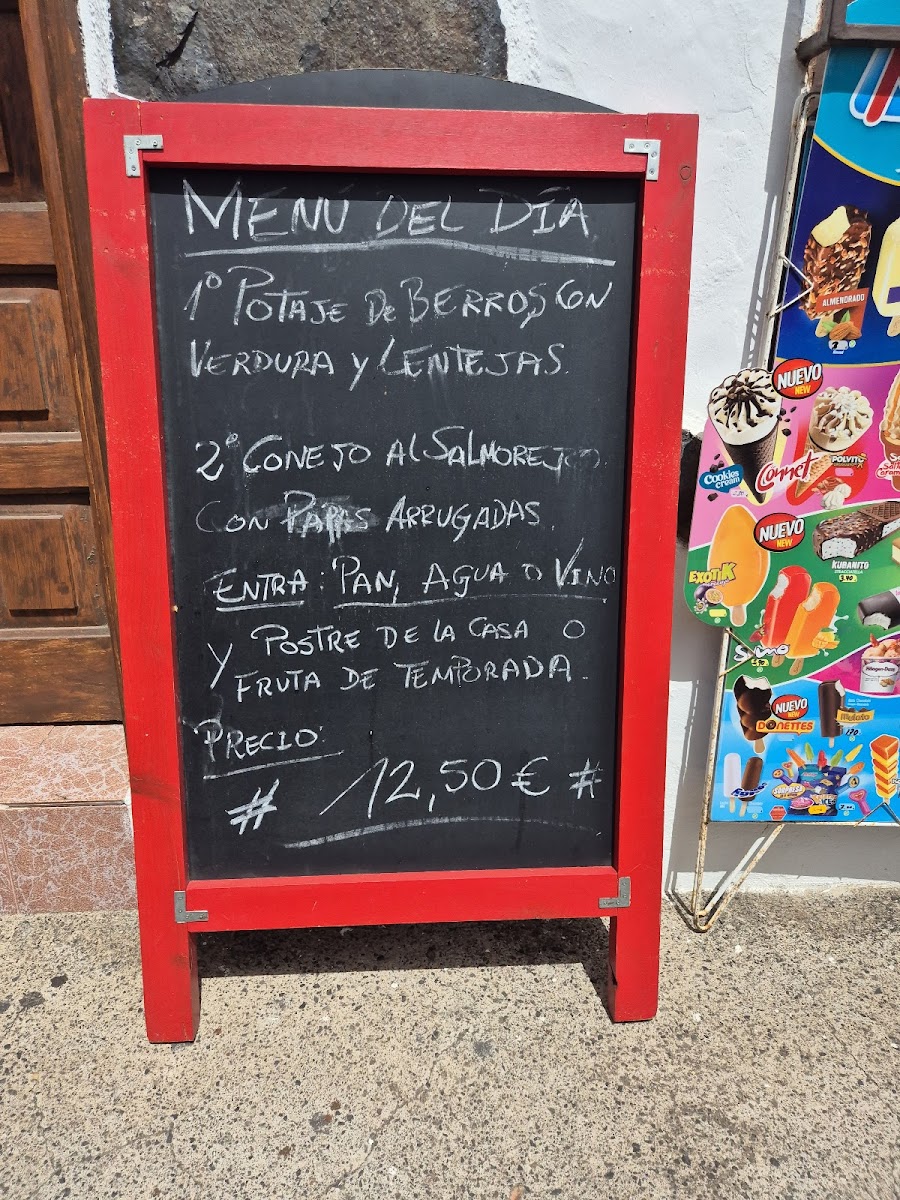 MENÚ DEL DÍA
1º POTAJE DE BERROS CON
VERDURA Y LENTEJAS.
2º CONEJO AL SALMOREJO
CON PAPAS ARRUGADAS.
ENTRA: PAN, AGUA O VINO
Y POSTRE DE LA CASA O
FRUTA DE TEMPORADA.
PRECIO:
# 12,50 € #
ALMENDRADO
NUEVO
NEW
Cookies
cream
Connet
POLVITO
NUEVO
NEW
EXOTIK
KUBANITO
3.40
NUEVO
NEW
DONETTES
Mulata
SORPRESA
Häagen-Dazs